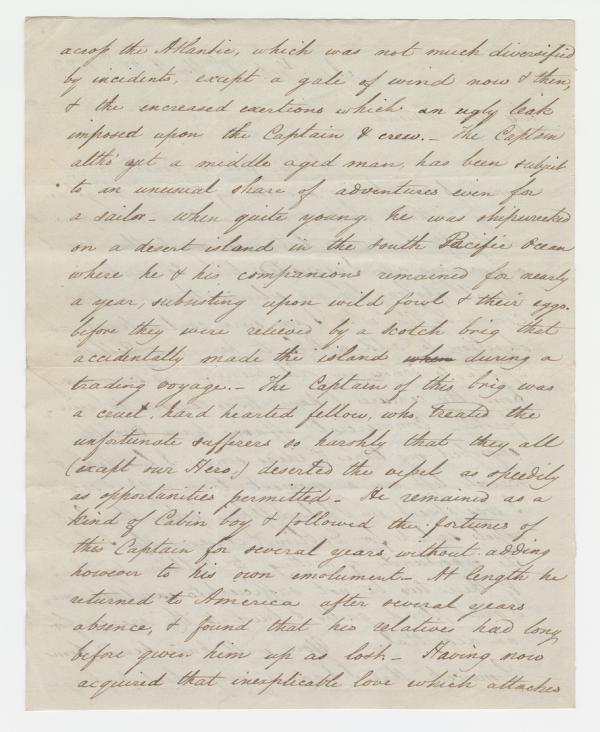 across the Atlantic, which was not much diversified
by incidents, except a gale of wind now & then,
& the increased exertions which an ugly leak
imposed upon the Captain & crew. _ The Captain
altho' yet a middle aged man, has been subject
to an unusual share of adventures even for
a sailor _ when quite young he was shipwrecked
on a desert island in the South Pacific Ocean
where he & his companions remained for nearly
a year, subsisting upon wild fowl & their eggs.
before they were relieved by a Scotch brig that
accidentally made the island when during a
trading voyage. _ The Captain of this brig was
a cruel, hard hearted fellow, who treated the
unfortunate sufferers so harshly that they all
(except our Hero,) deserted the vessel as speedily
as opportunities permitted _ He remained as a
kind of Cabin boy & followed the fortunes of
this Captain for several years, without adding
however to his own emolument _ At length he
returned to America after several years
absence, & found that his relatives had long
before given him up as lost _ Having now
acquired that inexplicable love which attaches